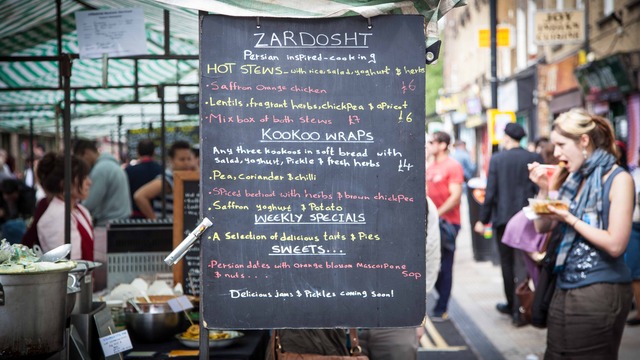 ZARDOSHT
Persian inspired-cooking
HOT STEWS - with rice, salad, yoghurt & herbs
· Saffron orange chicken £6
· Lentils, fragrant herbs, chickpea & apricot £6
· Mix box of both stews £7
KOOKOO WRAPS
Any three kookoos in soft bread with
Salad, yoghurt, Pickle & fresh herbs £4
· Pea, Coriander & chilli
· Spiced beetroot with herbs & brown chickpea
· Saffron yoghurt & Potato
WEEKLY SPECIALS
· A Selection of delicious tarts & Pies
SWEETS...
· Persian dates with orange blossom Mascarpone
& nuts.... 50p
Delicious jams & Pickles coming soon!
JOY